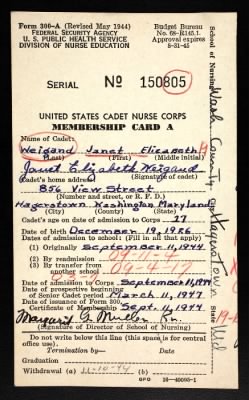 Form 300-A (Revised May 1944)
FEDERAL SECURITY AGENCY
U. S. PUBLIC HEALTH SERVICE
DIVISION OF NURSE EDUCATION
Budget Bureau
No. 68-R145.1.
Approval expires
8-31-45
SERIAL No 150805
UNITED STATES CADET NURSE CORPS
MEMBERSHIP CARD A
Name of Cadet:
Weigand Janet Elizabeth
(Last) (First) (Middle initial)
Janet Elizabeth Weigand
Cadet's home address: (Signature of cadet)
856 View Street
(Number and street, or R. F. D.)
Hagerstown Washington Maryland
(City) (County) (State)
Cadet's age on date of admission to Corps 17
Date of birth December 19, 1926
Dates of admission to school: (Fill in all that apply)
(1) Originally September 11, 1944
(2) By readmission
(3) By transfer from another school
Date of admission to Corps September 11, 1944
Date of prospective beginning of Senior Cadet period March 11, 1947
Date of issuance of Form 300, Certificate of Membership Sept. 11, 1944
Margaret G. Mueller R.n.
(Signature of Director of School of Nursing)
Do not write below this line (this space is for central office use).
Termination by— Date
Graduation
Withdrawal (a) 11-10-44 (b)
GPO 16-40095-1
School of Nursing Wash. County
Hagerstown
State Md.